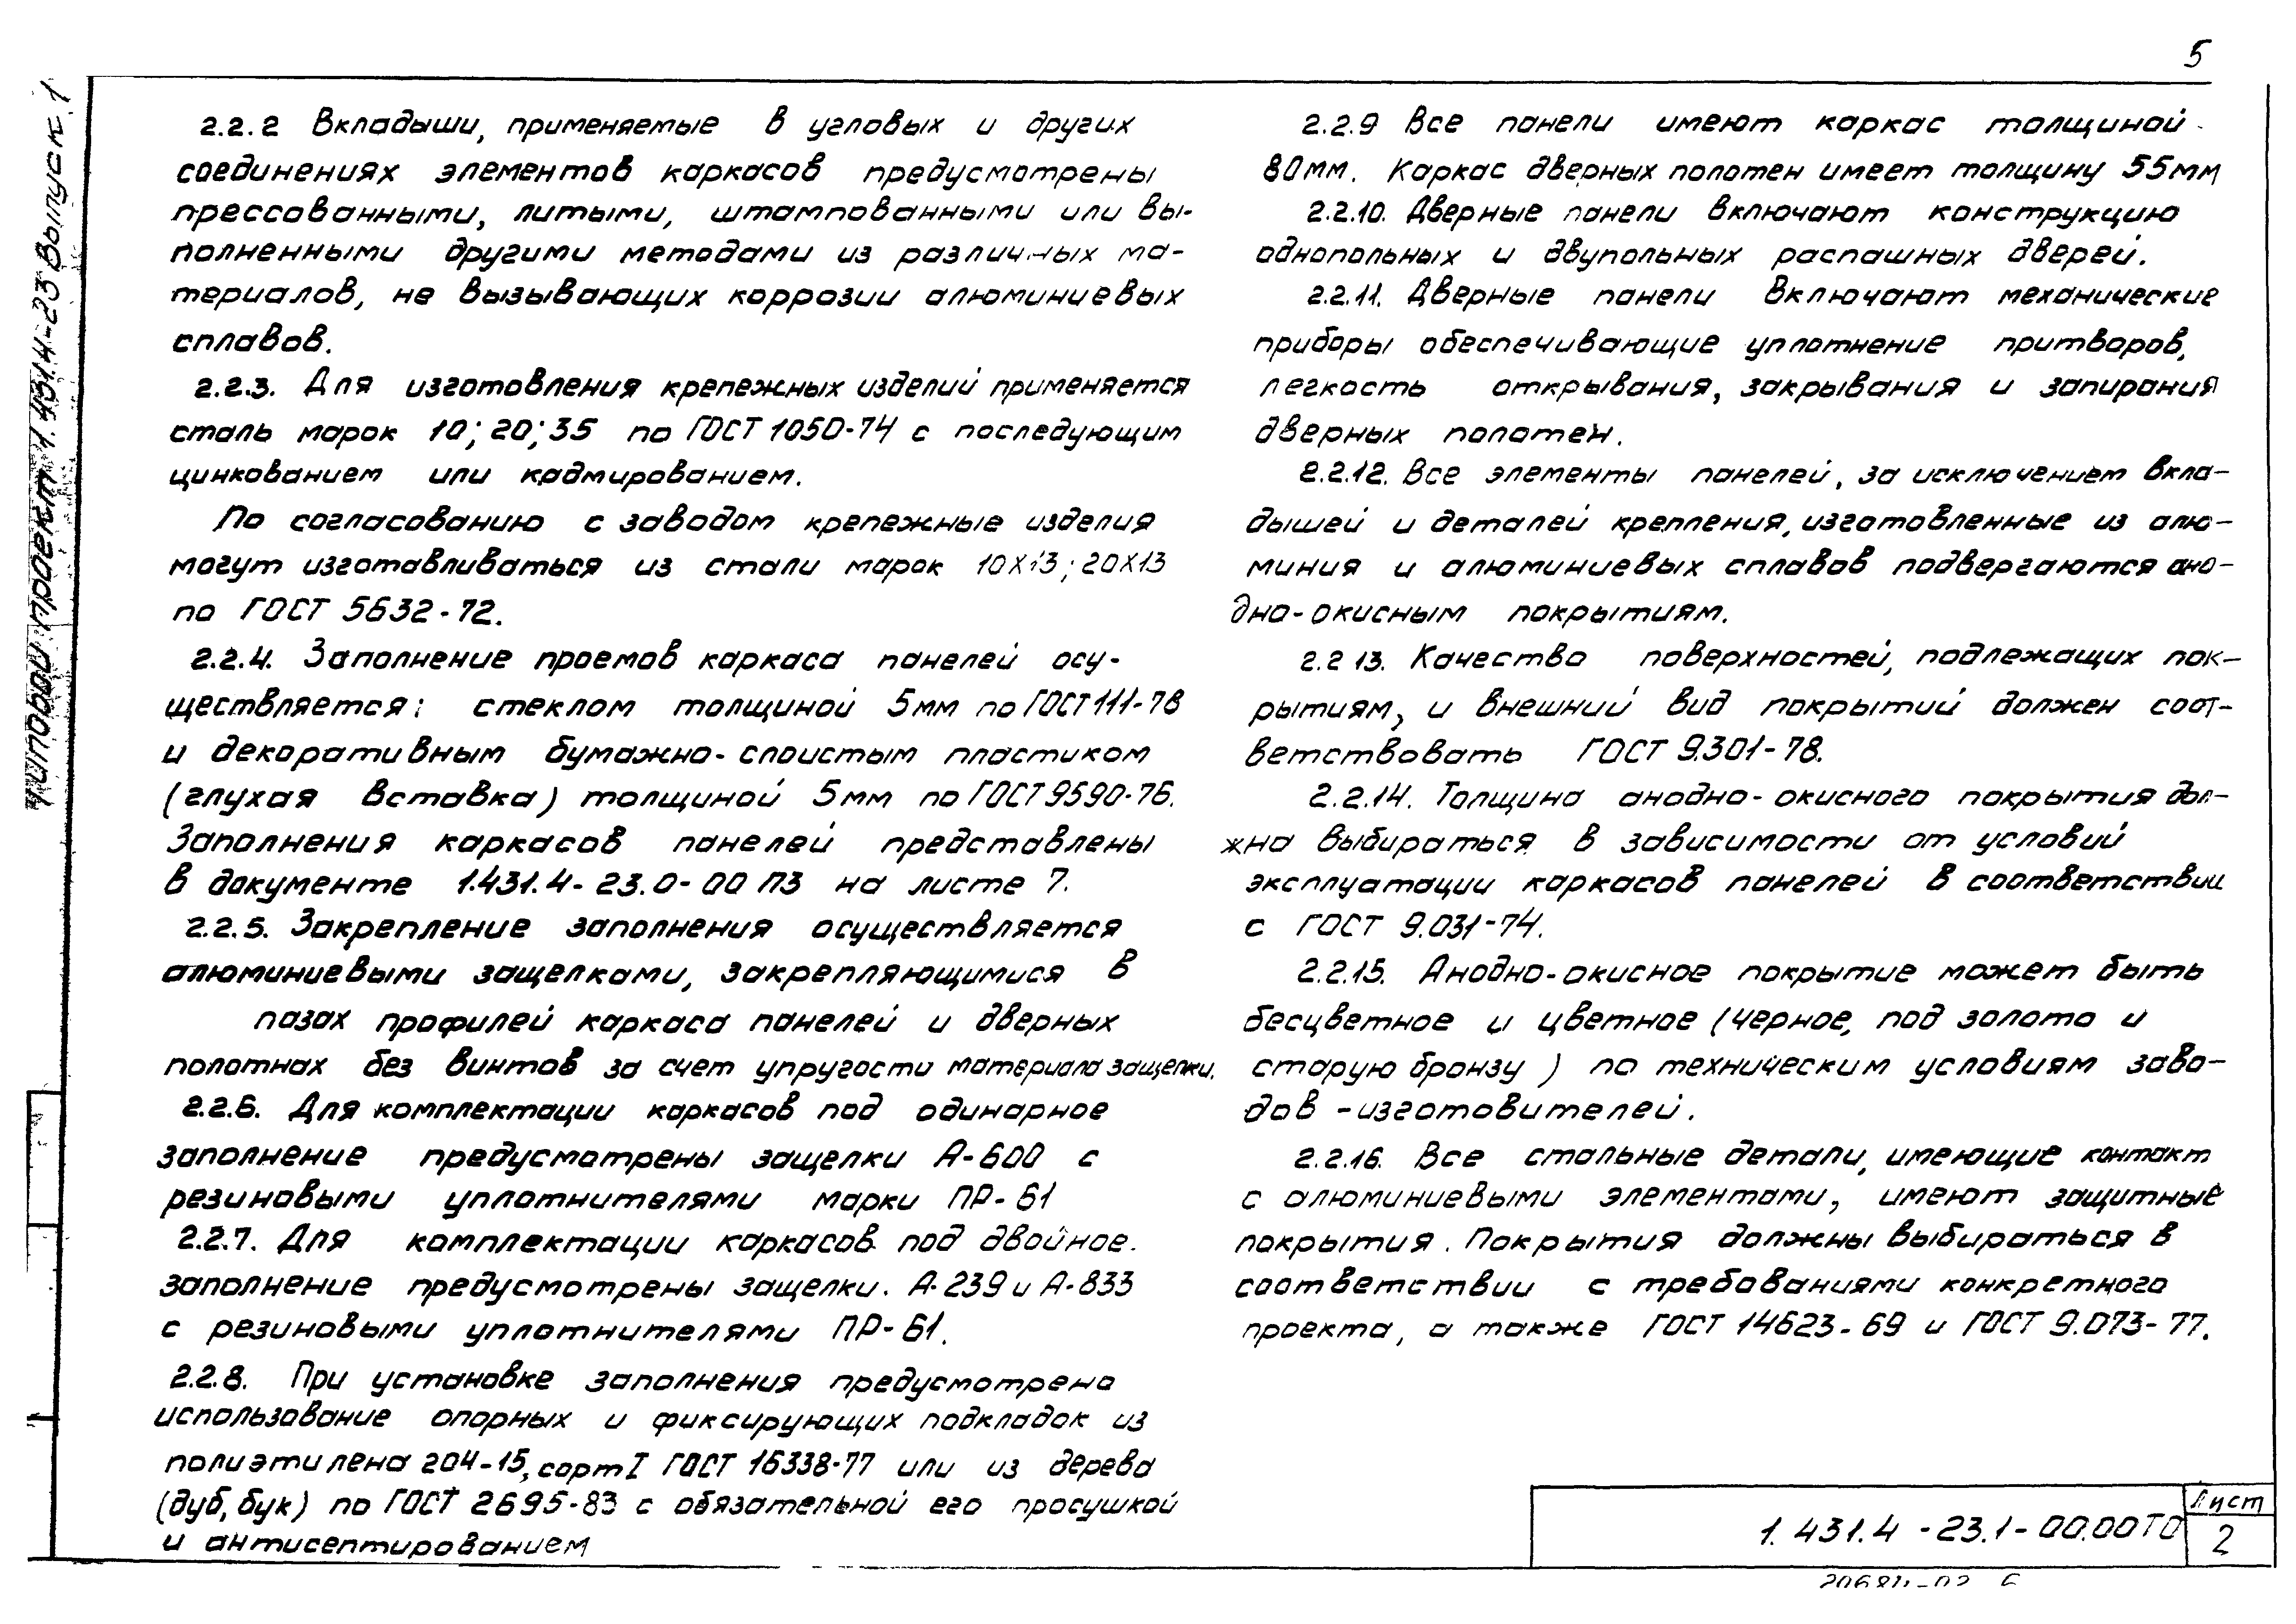 5
Типовой проект 1.431.4-23 Выпуск 1
2.2.2 Вкладыши, применяемые в угловых и других
соединениях элементов каркасов предусмотрены
прессованными, литыми, штампованными или вы-
полненными другими методами из различных ма-
териалов, не вызывающих коррозии алюминиевых
сплавов.
2.2.3. Для изготовления крепежных изделий применяется
сталь марок 10; 20; 35 по ГОСТ 1050-74 с последующим
цинкованием или кадмированием.
По согласованию с заводом крепежные изделия
могут изготавливаться из стали марок 10Х13; 20Х13
по ГОСТ 5632-72.
2.2.4. Заполнение проемов каркаса панелей осу-
ществляется: стеклом толщиной 5мм по ГОСТ 111-78
и декоративным бумажно-слоистым пластиком
(глухая вставка) толщиной 5мм по ГОСТ 9590-76.
Заполнения каркасов панелей представлены
в документе 1.431.4-23.0-00 ПЗ на листе 7.
2.2.5. Закрепление заполнения осуществляется
алюминиевыми защелками, закрепляющимися в
пазах профилей каркаса панелей и дверных
полотнах без винтов за счет упругости материала защелки.
2.2.6. Для комплектации каркасов под одинарное
заполнение предусмотрены защелки А-600 с
резиновыми уплотнителями марки ПР-61
2.2.7. Для комплектации каркасов под двойное.
заполнение предусмотрены защелки. А-239 и А-833
с резиновыми уплотнителями ПР-61.
2.2.8. При установке заполнения предусмотрена
использование опорных и фиксирующих подкладок из
полиэтилена 204-15, сорт I ГОСТ 16338-77 или из дерева
(дуб, бук) по ГОСТ 2695-83 с обязательной его просушкой
и антисептированием
2.2.9 Все панели имеют каркас толщиной
80мм. Каркас дверных полотен имеет толщину 55мм
2.2.10. Дверные панели включают конструкцию
однопольных и двупольных распашных дверей.
2.2.11. Дверные панели включают механические
приборы обеспечивающие уплотнение притворов,
легкость открывания, закрывания и запирания
дверных полотен.
2.2.12. Все элементы панелей, за исключением вкла-
дышей и деталей крепления, изготовленные из алю-
миния и алюминиевых сплавов подвергаются ано-
дно-окисным покрытиям.
2.2 13. Качество поверхностей, подлежащих пок-
рытиям, и внешний вид покрытий должен соот-
ветствовать ГОСТ 9.301-78.
2.2.14. Толщина анодно-окисного покрытия дол-
жна выбираться в зависимости от условий
эксплуатации каркасов панелей в соответствии
с ГОСТ 9.031-74.
2.2.15. Анодно-окисное покрытие может быть
бесцветное и цветное (черное, под золото и
старую бронзу) по техническим условиям заво-
дов-изготовителей.
2.2.16. Все стальные детали, имеющие контакт
с алюминиевыми элементами, имеют защитные
покрытия. Покрытия должны выбираться в
соответствии с требованиями конкретного
проекта, а также ГОСТ 14623-69 и ГОСТ 9.073-77.
1.431.4-23.1-00.00ТО
Лист
2